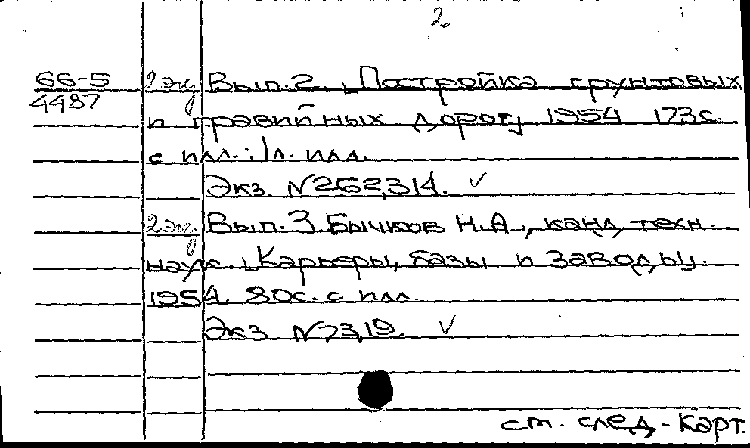 2
66-5 2 экз Вып. 2. Постройка грунтовых
4487
и гравийных дорог, 1954 173 с.
с илл.; 1 л. илл.
Экз. N262,314. ✓
2 экз. Вып. 3 Бычков Н.А., канд. техн.
наук. Карьеры, базы и заводы.
1954. 80 с. с илл.
Экз. N7319. ✓
см. след. карт.